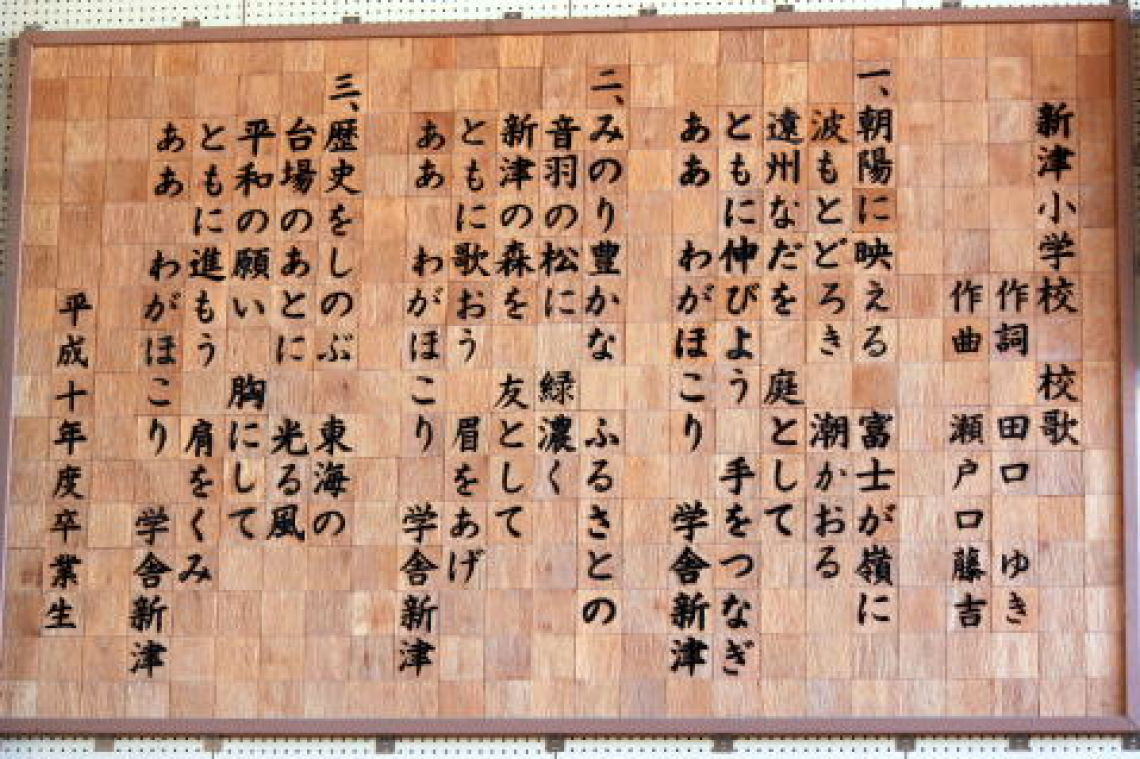 新津小学校　校歌
作詞　田口　ゆき
作曲　瀬戸口藤吉
一、朝陽に映える　富士が嶺に
波もとどろき　潮かおる
遠州なだを　庭として
ともに伸びよう　手をつなぎ
ああ　わがほこり　学舎新津
二、みのり豊かな　ふるさとの
音羽の松に　緑濃く
新津の森を　友として
ともに歌おう　眉をあげ
ああ　わがほこり　学舎新津
三、歴史をしのぶ　東海の
台場のあとに　光る風
平和の願い　胸にして
ともに進もう　肩をくみ
ああ　わがほこり　学舎新津
平成十年度卒業生